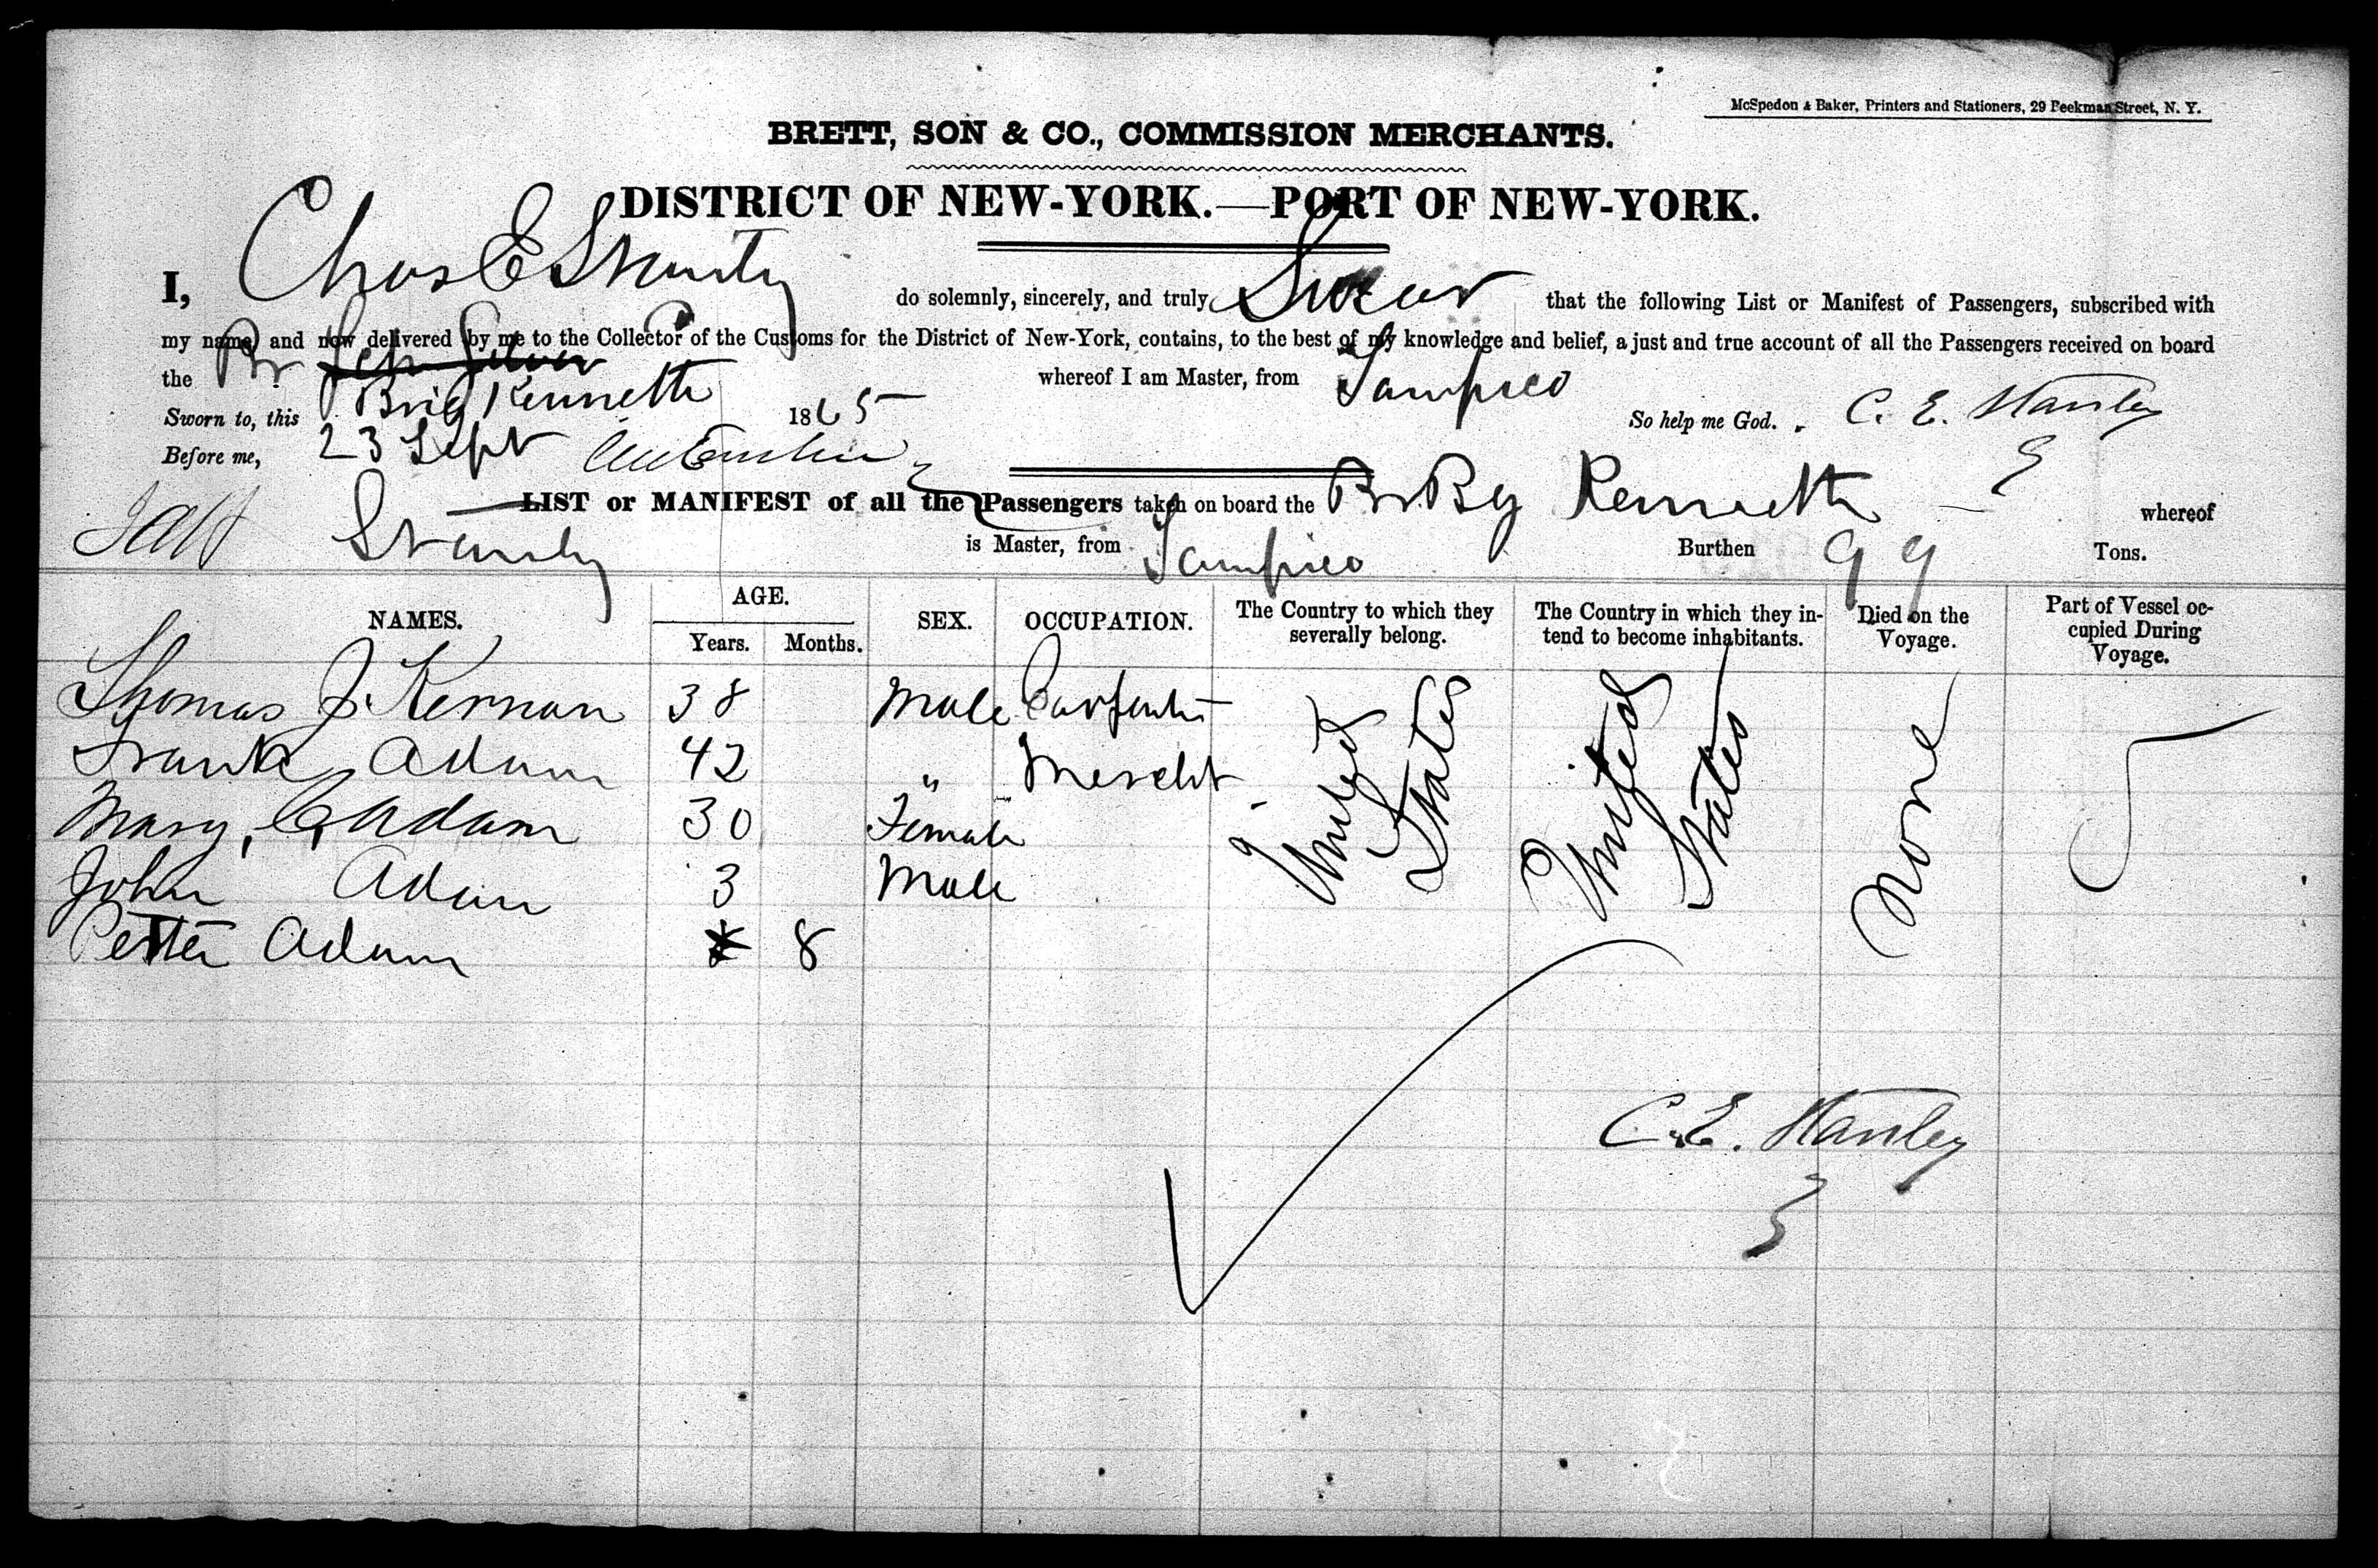 McSpedon & Baker, Printers and Stationers, 29 Beekman Street, N. Y.
BRETT, SON & CO., COMMISSION MERCHANTS.
DISTRICT OF NEW-YORK.—PORT OF NEW-YORK.
I, Chas E Stanley do solemnly, sincerely, and truly Swear that the following List or Manifest of Passengers, subscribed with
my name, and now delivered by me to the Collector of the Customs for the District of New-York, contains, to the best of my knowledge and belief, a just and true account of all the Passengers received on board
the Br Brig Kenneth whereof I am Master, from Tampico
Sworn to, this 23 Sept 1865 So help me God. C. E. Stanley
Before me,
LIST or MANIFEST of all the Passengers taken on board the Br. Bg Kenneth whereof
Stanley is Master, from Tampico Burthen 99 Tons.
NAMES. AGE. Years. Months. SEX. OCCUPATION. The Country to which they severally belong. The Country in which they intend to become inhabitants. Died on the Voyage. Part of Vessel occupied During Voyage.
Thomas J. Kernan 38 Male Carpenter United States United States None
Frank Adam 42 " Mercht
Mary, C, Adam 30 Female
John Adam 3 Male
Petter Adam 8
C. E. Stanley